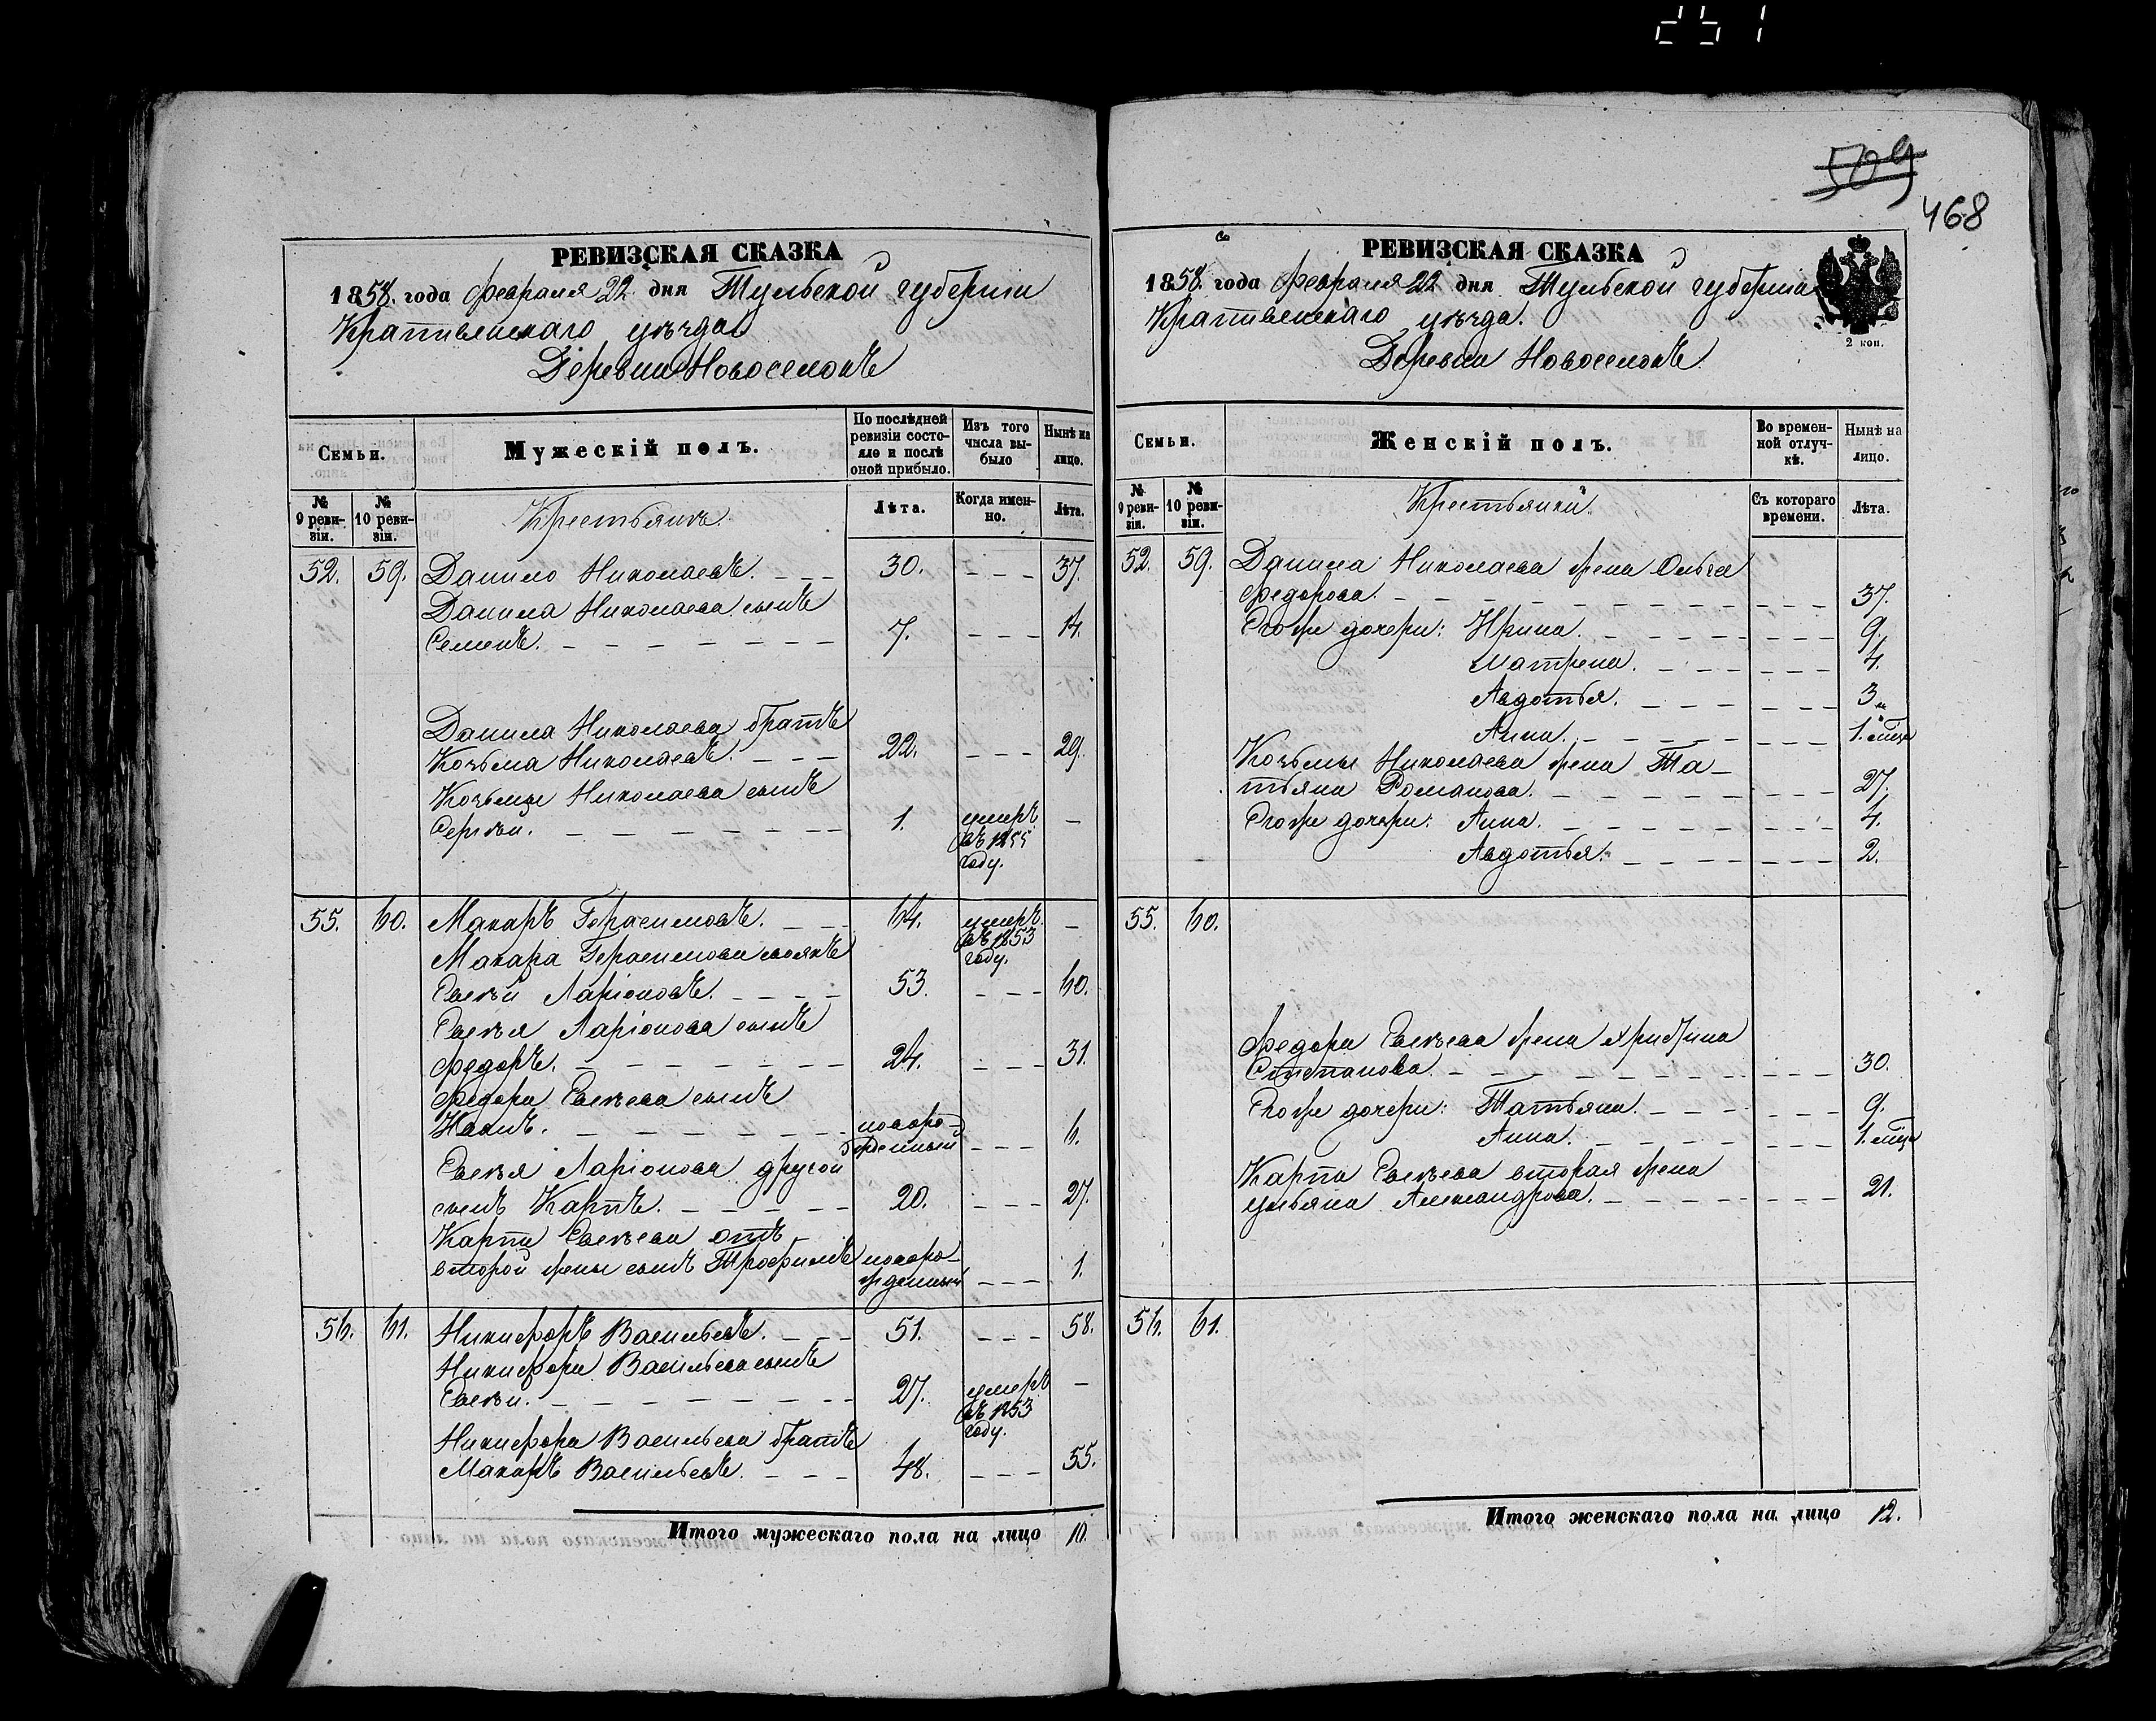 251
509
468
РЕВИЗСКАЯ СКАЗКА
1858. года Февраля 22 дня Тульской губернiи
Крапивенскаго уѣзда
Деревни Новоселокъ
Семьи.
Мужескiй полъ.
По послѣдней ревизiи состояло и послѣ оной прибыло.
Изъ того числа выбыло
Нынѣ на лицо.
№ 9 ревизiи.
№ 10 ревизiи.
Крестьянъ.
Лѣта.
Когда именно.
Лѣта.
52. 59. Данило Николаевъ. - - - 30. - - - 37.
Данила Николаева сынъ
Семенъ. - - - - - - - 7. - - - 14.
Данила Николаева братъ
Козьма Николаевъ. - - - 22. - - - 29.
Козьмы Николаева сынъ
Сергѣй. - - - - - - - 1. умеръ -
въ 1855
году.
55. 60. Макаръ Герасимовъ. - - 64. умеръ -
въ 1853
году.
Макара Герасимова своякъ
Евсѣй Ларiоновъ. - - - - 53. - - - 60.
Евсѣя Ларiонова сынъ
Федоръ. - - - - - - - 24. - - - 31.
Федора Евсѣева сынъ
- - - - - - - новоро-
жденный - - - 6.
Евсѣя Ларiонова другой
сынъ Карпъ. - - - - - 20. - - - 27.
Карпа Евсѣева отъ
второй жены сынъ Трофимъ новоро-
жденный - - - 1.
56. 61. Никифоръ Васильевъ. - - - 51. - - - 58.
Никифора Васильева сынъ
Евсѣй. - - - - - - - 27. умеръ -
въ 1853
году.
Никифора Васильева братъ
Макаръ Васильевъ. - - - 48. - - - 55.
Итого мужескаго пола на лицо 10.
РЕВИЗСКАЯ СКАЗКА
1858. года Февраля 22 дня Тульской губернiи
Крапивенскаго уѣзда.
Деревни Новоселокъ
2 коп.
Семьи.
Женскiй полъ.
Во временной отлучкѣ.
Нынѣ на лицо.
№ 9 ревизiи.
№ 10 ревизiи.
Крестьянки
Съ котораго времени.
Лѣта.
52. 59. Данила Николаева жена Ольга
Федорова. - - - - - - - - - - 37.
Егоже дочери: Ирина. - - - - - - - 9.
Матрена. - - - - - - 4.
Авдотья. - - - - - - 3
Анна. - - - - - - - 1.
Козьмы Николаева жена Та-
тьяна Романова. - - - - - - - 27.
Егоже дочери: Анна. - - - - - - - 4.
Авдотья. - - - - - - 2.
55. 60.
Федора Евсѣева жена
Степанова. - - - - - - - - - - 30.
Егоже дочери: Татьяна. - - - - - - 9.
Анна. - - - - - - - 1.
Карпа Евсѣева вторая жена
Ульяна Александрова. - - - - - - 21.
56. 61.
Итого женскаго пола на лицо 12.